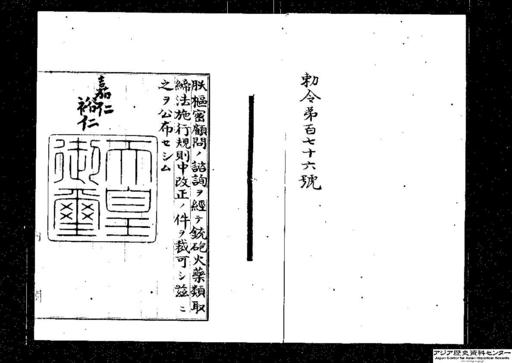 勅令第百七十六號
朕樞密顧問ノ諮詢ヲ經テ銃砲火藥類取
締法施行規則中改正ノ件ヲ裁可シ茲ニ
之ヲ公布セシム
嘉仁
裕仁
天皇
御璽
アジア歴史資料センター
Japan Center for Asian Historical Records